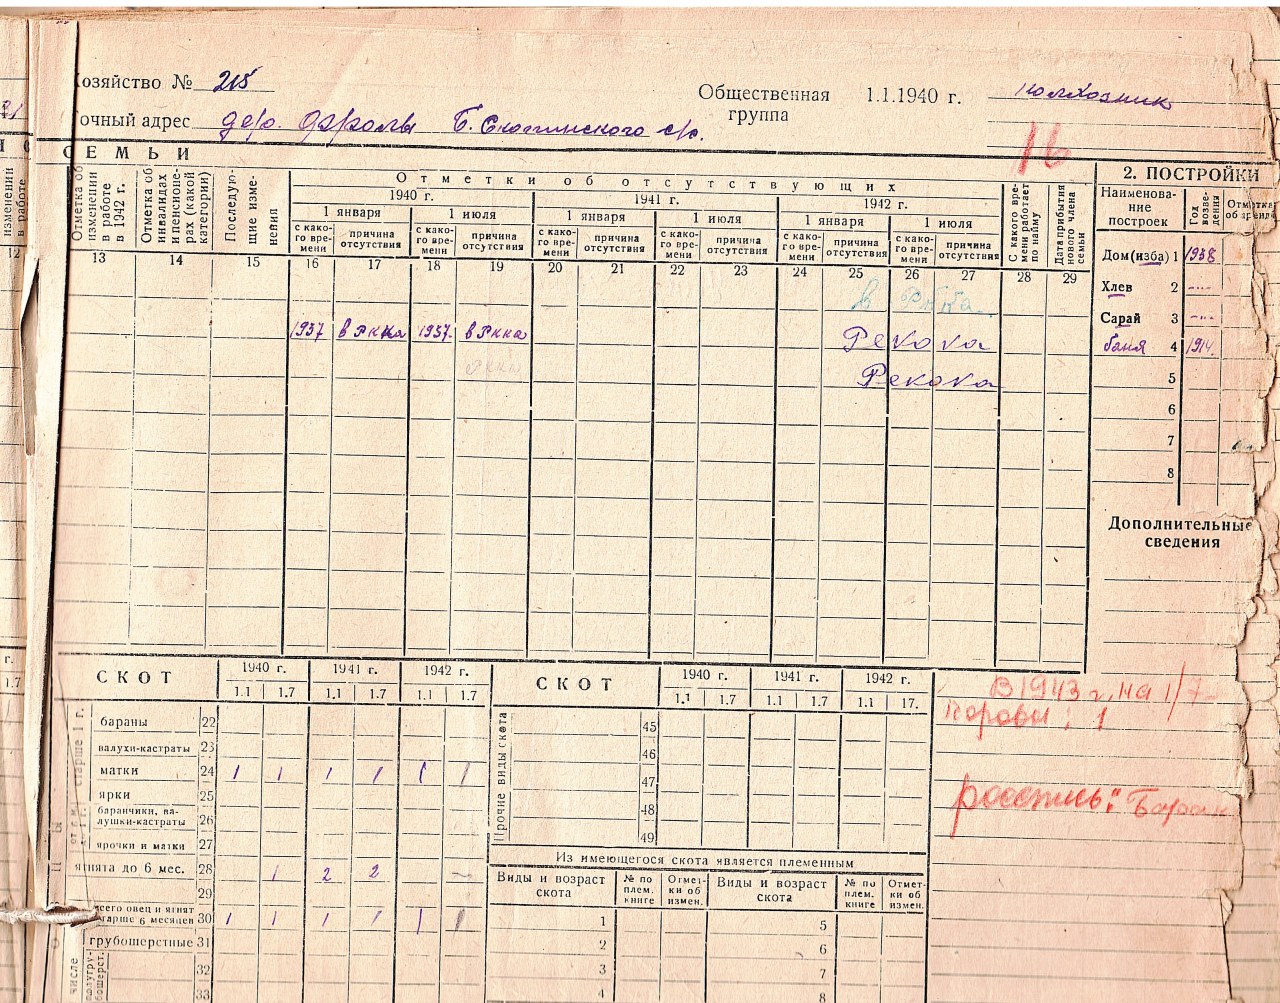 Хозяйство № 215
Общественная группа 1.1.1940 г. колхозник
Точный адрес дер. Фролы Б. Скопинского с/с.
16
СЕМЬИ
изменении в работе
12
Отметка об изменении в работе в 1942 г.
Отметка об инвалидах и пенсионерах (какой категории)
Последующие изменения
Отметки об отсутствующих
1940 г. 1941 г. 1942 г.
1 января 1 июля 1 января 1 июля 1 января 1 июля
с какого времени причина отсутствия с какого времени причина отсутствия с какого времени причина отсутствия с какого времени причина отсутствия с какого времени причина отсутствия с какого времени причина отсутствия
С какого времени работает по найму
Дата прибытия нового члена семьи
13 14 15 16 17 18 19 20 21 22 23 24 25 26 27 28 29
в РККА
1937 в Ркка 1937. в Ркка
Ркка
2. ПОСТРОЙКИ
Наименование построек
Год возведения
Отметка об аренде
Дом (изба) 1 1938
Хлев 2 -----
Сарай 3 -----
баня 4 1914.
5
6
7
8
Дополнительные сведения
г.
1.7
СКОТ 1940 г. 1941 г. 1942 г.
1.1 1.7 1.1 1.7 1.1 1.7
старше 1 г.
бараны 22
валухи-кастраты 23
матки 24 1 1 1 1 1 1
ярки 25
баранчики, валушки-кастраты 26
ярочки и матки 27
ягнята до 6 мес. 28 1 2 2 –
29
всего овец и ягнят старше 6 месяцев 30 1 1 1 1 1 1
числе
грубошерстные 31
полугрубошерст.
32
33
СКОТ 1940 г. 1941 г. 1942 г.
1.1 1.7 1.1 1.7 1.1 17.
Прочие виды скота
45
46
47
48
49
Из имеющегося скота является племенным
Виды и возраст скота № по плем. книге Отметки об измен. Виды и возраст скота № по плем. книге Отметки об измен.
1 5
2 6
3 7
4 8
В 1943 г. на 1/7-
Коровы: 1
роспись: